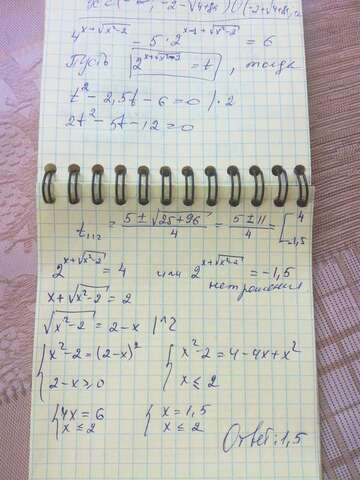 4^(x+√(x²-2)) - 5·2^(x-1+√(x²-2)) = 6
Пусть 2^(x+√(x²-2)) = t, тогда
t² - 2,5t - 6 = 0 | · 2
2t² - 5t - 12 = 0
t₁,₂ = (5 ± √(25+96))/4 = (5 ± 11)/4 = [4; -1,5
2^(x+√(x²-2)) = 4 или 2^(x+√(x²-2)) = -1,5
нет решения
x + √(x²-2) = 2
√(x²-2) = 2-x |^2
{x²-2 = (2-x)² {x²-2 = 4-4x+x²
2-x ≥ 0 x ≤ 2
{4x = 6 {x = 1,5
x ≤ 2 x ≤ 2
Ответ: 1,5